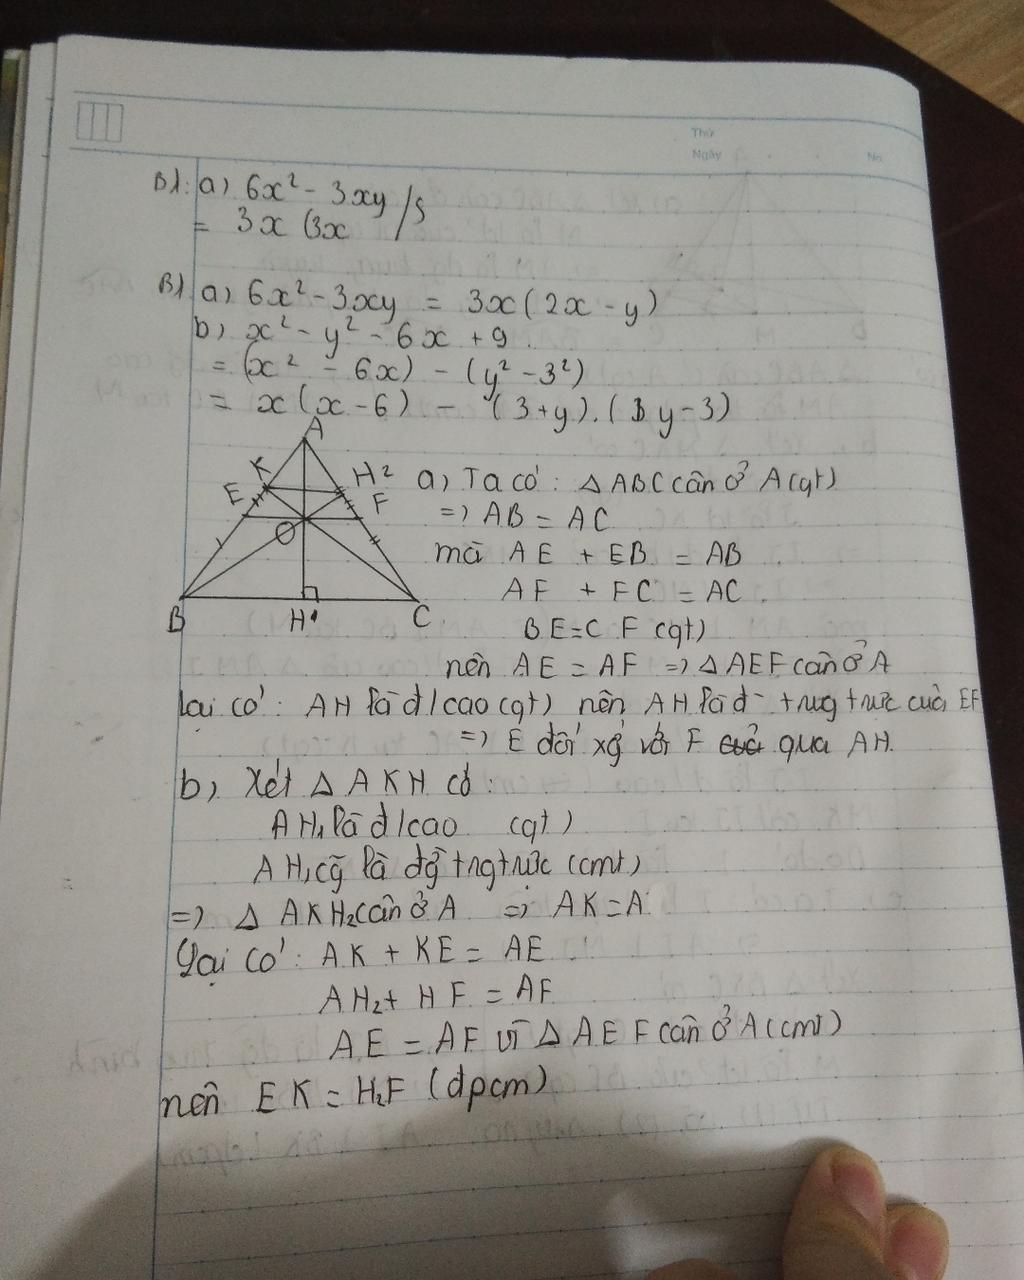 Thứ
Ngày No.
B1: a) 6x² - 3xy /s
= 3x (3x
B1 a) 6x² - 3xy = 3x(2x - y)
b) x² - y² - 6x + 9
= (x² - 6x) - (y² - 3²)
= x(x - 6) - (3 + y).(y - 3)
A
K H2
E F
O
B H1 C
a) Ta có: Δ ABC cân ở A (gt)
=> AB = AC
mà AE + EB = AB
AF + FC = AC.
BE = CF (gt)
nên AE = AF => Δ AEF cân ở A
Lại có: AH là đ/cao (gt) nên AH là đ- trug trực của EF
=> E đối xg với F qua AH.
b) Xét Δ AKH có:
AH1 là đ/cao (gt)
AH1 cg là đg trng trực (cmt)
=> Δ AKH2 cân ở A => AK = A
Lại có: AK + KE = AE
AH2 + HF = AF
AE = AF vì Δ AEF cân ở A (cmt)
nên EK = H2F (đpcm)